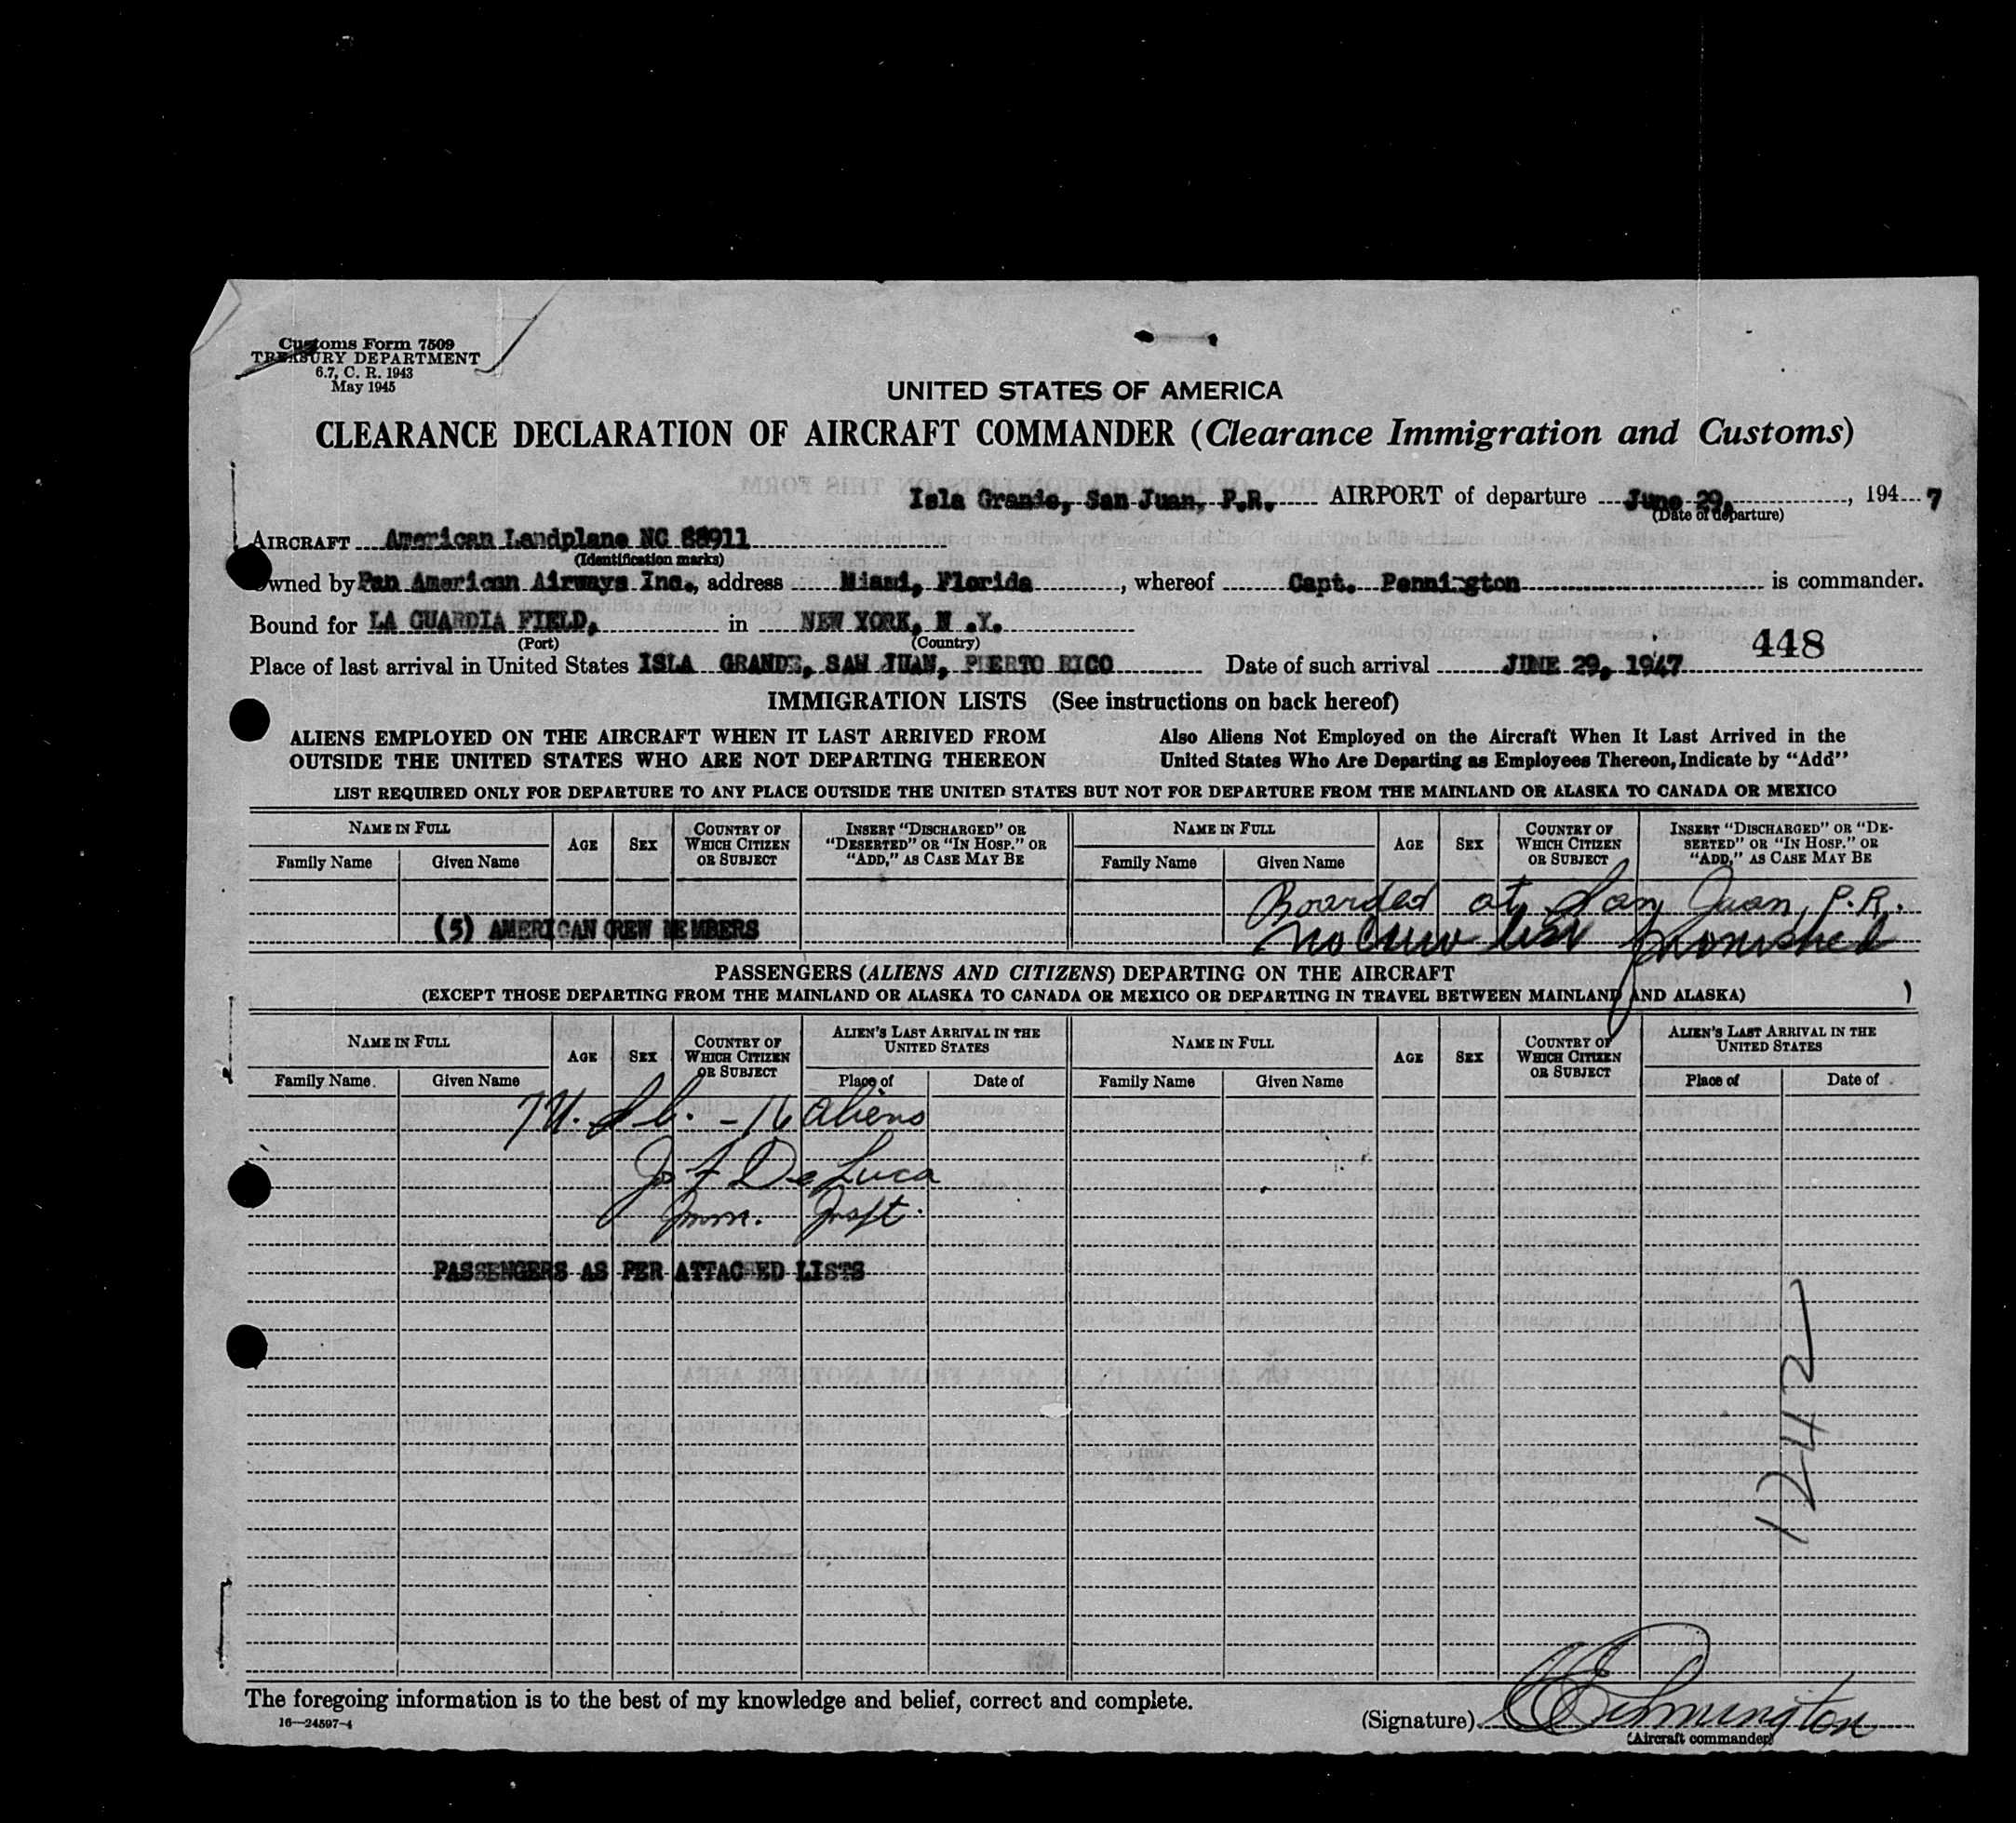 Customs Form 7509
TREASURY DEPARTMENT
6.7, C. R. 1943
May 1945
UNITED STATES OF AMERICA
CLEARANCE DECLARATION OF AIRCRAFT COMMANDER (Clearance Immigration and Customs)
Isla Grande, San Juan, P.R. AIRPORT of departure June 29, , 194 7
(Date of departure)
AIRCRAFT American Landplane NC 88911
(Identification marks)
Owned by Pan American Airways Inc., address Miami, Florida , whereof Capt. Pennington is commander.
Bound for LA GUARDIA FIELD, in NEW YORK, N .Y.
(Port) (Country)
448
Place of last arrival in United States ISLA GRANDE, SAN JUAN, PUERTO RICO Date of such arrival JUNE 29, 1947
IMMIGRATION LISTS (See instructions on back hereof)
ALIENS EMPLOYED ON THE AIRCRAFT WHEN IT LAST ARRIVED FROM Also Aliens Not Employed on the Aircraft When It Last Arrived in the
OUTSIDE THE UNITED STATES WHO ARE NOT DEPARTING THEREON United States Who Are Departing as Employees Thereon, Indicate by "Add"
LIST REQUIRED ONLY FOR DEPARTURE TO ANY PLACE OUTSIDE THE UNITED STATES BUT NOT FOR DEPARTURE FROM THE MAINLAND OR ALASKA TO CANADA OR MEXICO
NAME IN FULL AGE SEX COUNTRY OF WHICH CITIZEN OR SUBJECT INSERT "DISCHARGED" OR "DESERTED" OR "IN HOSP." OR "ADD," AS CASE MAY BE NAME IN FULL AGE SEX COUNTRY OF WHICH CITIZEN OR SUBJECT INSERT "DISCHARGED" OR "DE-SERTED" OR "IN HOSP." OR "ADD," AS CASE MAY BE
Family Name Given Name Family Name Given Name
Boarded at San Juan, P.R.
(5) AMERICAN CREW MEMBERS No Crew list furnished
PASSENGERS (ALIENS AND CITIZENS) DEPARTING ON THE AIRCRAFT
(EXCEPT THOSE DEPARTING FROM THE MAINLAND OR ALASKA TO CANADA OR MEXICO OR DEPARTING IN TRAVEL BETWEEN MAINLAND AND ALASKA)
NAME IN FULL AGE SEX COUNTRY OF WHICH CITIZEN OR SUBJECT ALIEN'S LAST ARRIVAL IN THE UNITED STATES NAME IN FULL AGE SEX COUNTRY OF WHICH CITIZEN OR SUBJECT ALIEN'S LAST ARRIVAL IN THE UNITED STATES
Family Name Given Name Place of Date of Family Name Given Name Place of Date of
- 16 aliens
De Luca
Imm. Inspt.
PASSENGERS AS PER ATTACHED LISTS
1242
The foregoing information is to the best of my knowledge and belief, correct and complete.
16—24597-4
(Signature) Pennington
(Aircraft commander)